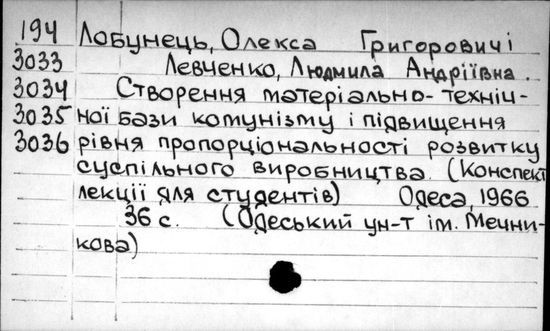 194 Лобунець, Олекса Григоровичі
3033 Левченко, Людмила Андріївна.
3034 Створення матеріально-техніч-
3035 ної бази комунізму і підвищення
3036 рівня пропорціональності розвитку
суспільного виробництва. (Конспект
лекції для студентів) Одеса, 1966
36 с. (Одеський ун-т ім. Мечни-
кова)